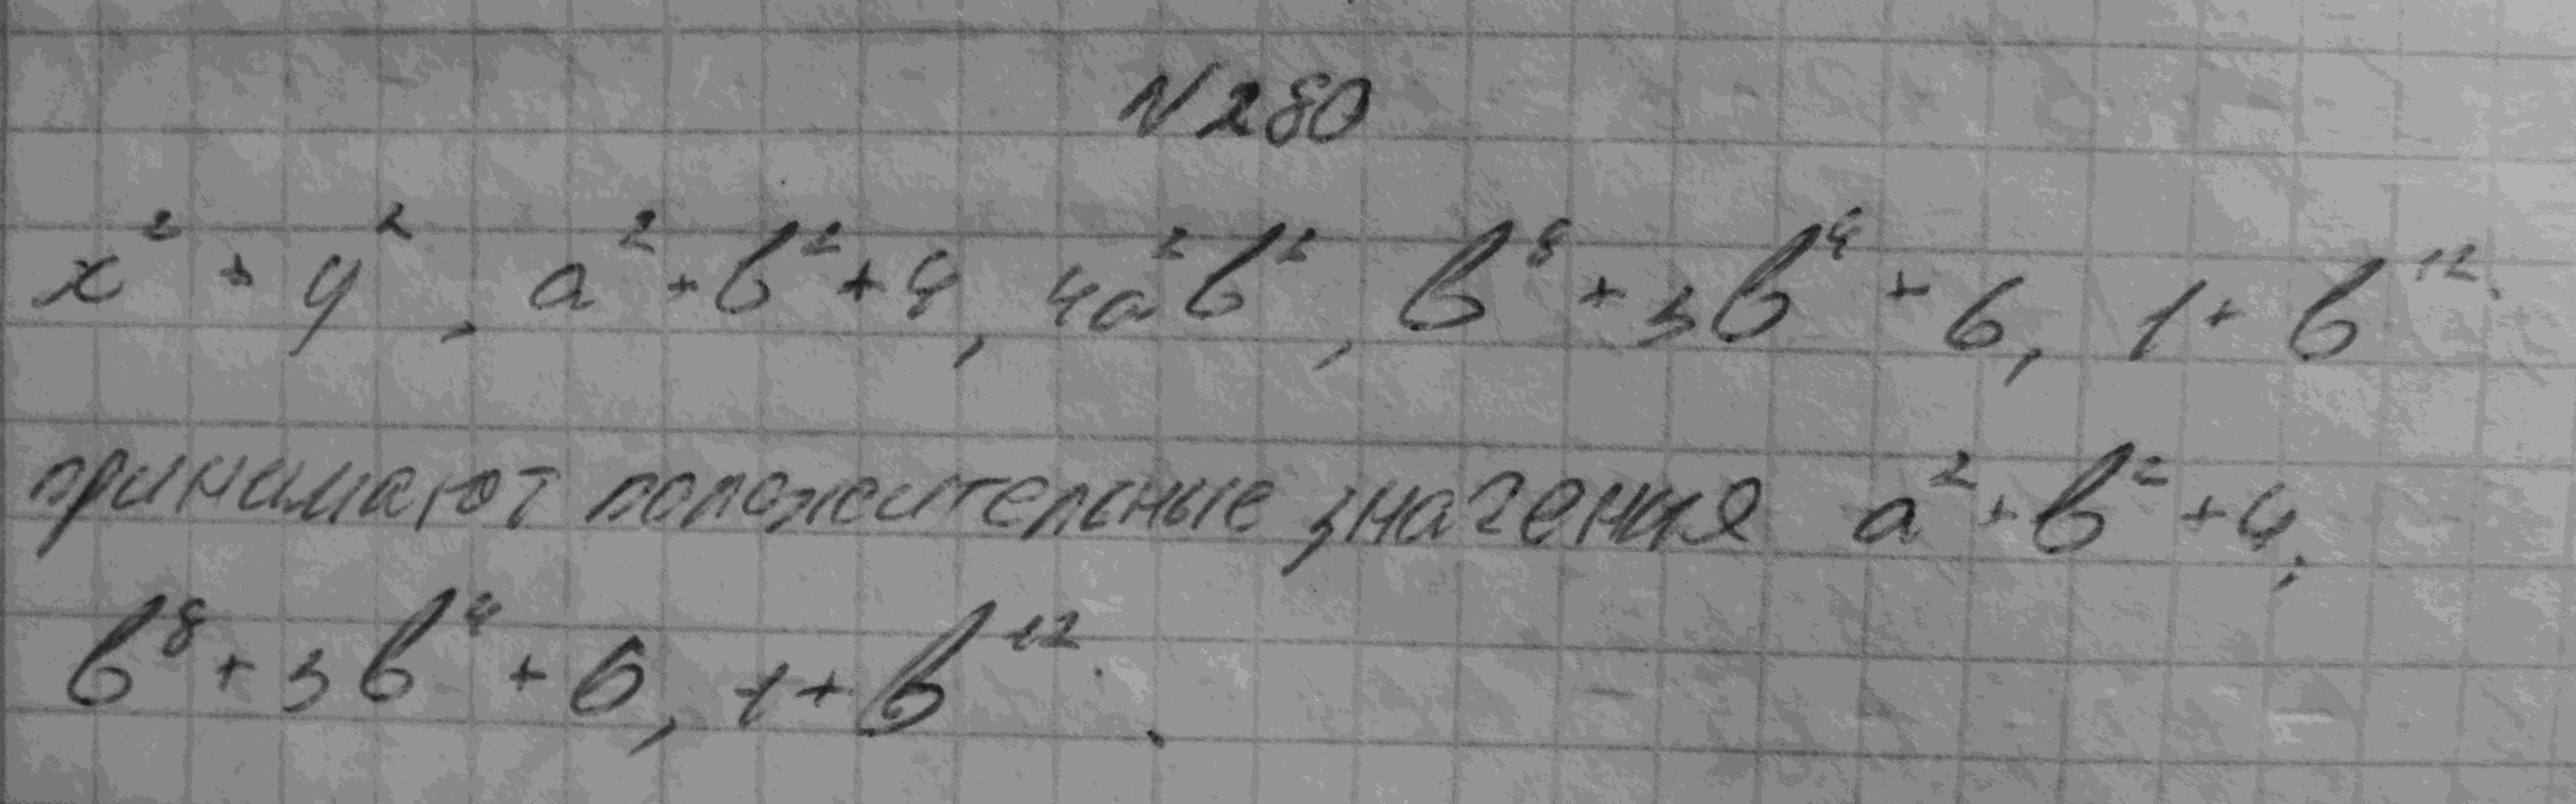 N280
x² + y², a² + b² + 4, 4a²b², b⁸ + 3b⁴ + 6, 1 + b¹².
принимают положительные значения a² + b² + 4;
b⁸ + 3b⁴ + 6, 1 + b¹².